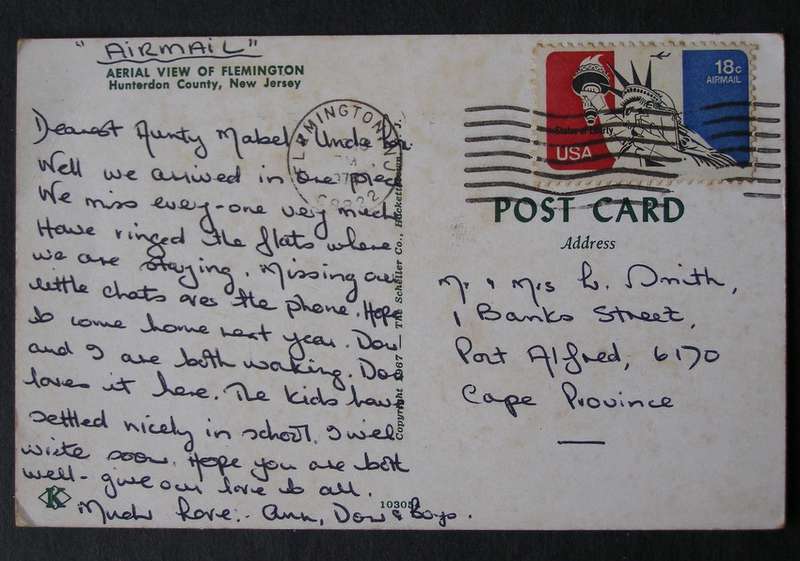 "AIRMAIL"
AERIAL VIEW OF FLEMINGTON
Hunterdon County, New Jersey
Dearest Aunty Mabel, Uncle
Well we arrived in one piece
We miss every-one very much
Have ringed the flats where
we are staying. Missing our
little chats over the phone. Hope
to come home next year. Don
and I are both working. Don
loves it here. The kids have
settled nicely in school. I will
write soon. Hope you are both
well - give our love to all.
Much Love. Ann, Don & Boys.
K
10305
Copyright 1967 — The Scheller Co., Hackettstown, N.J.
FLEMINGTON
18c
AIRMAIL
Statue of Liberty
USA
POST CARD
Address
Mr & Mrs L. Smith,
1 Banks Street,
Port Alfred, 6170
Cape Province